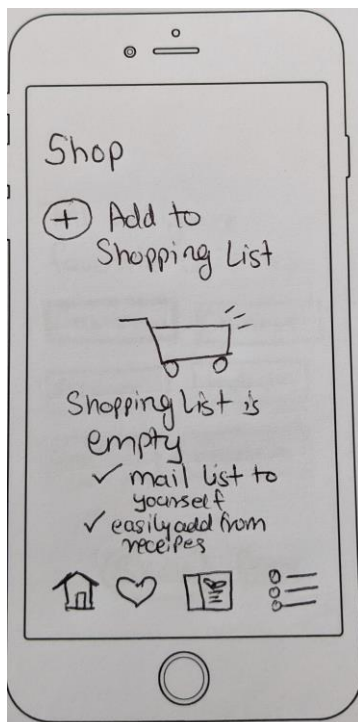 Shop
+ Add to
Shopping List
Shopping List is
empty
✓ mail list to
yourself
✓ easily add from
receipes